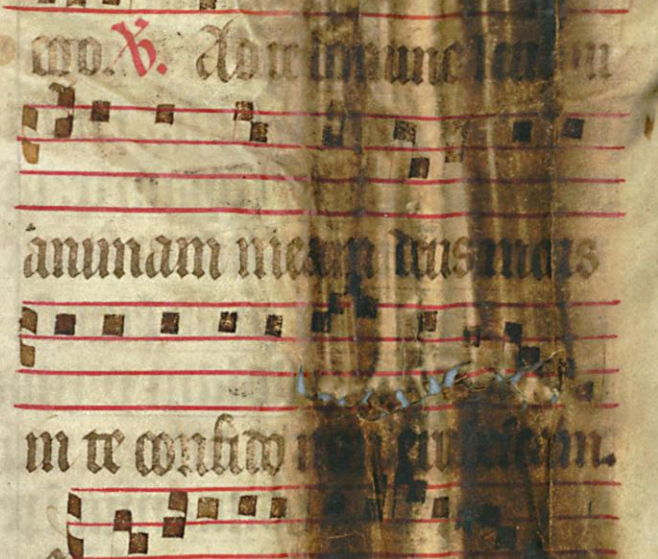 ℣. Ad te domine leuaui
animam meam deus meus
in te confido non erubescam.